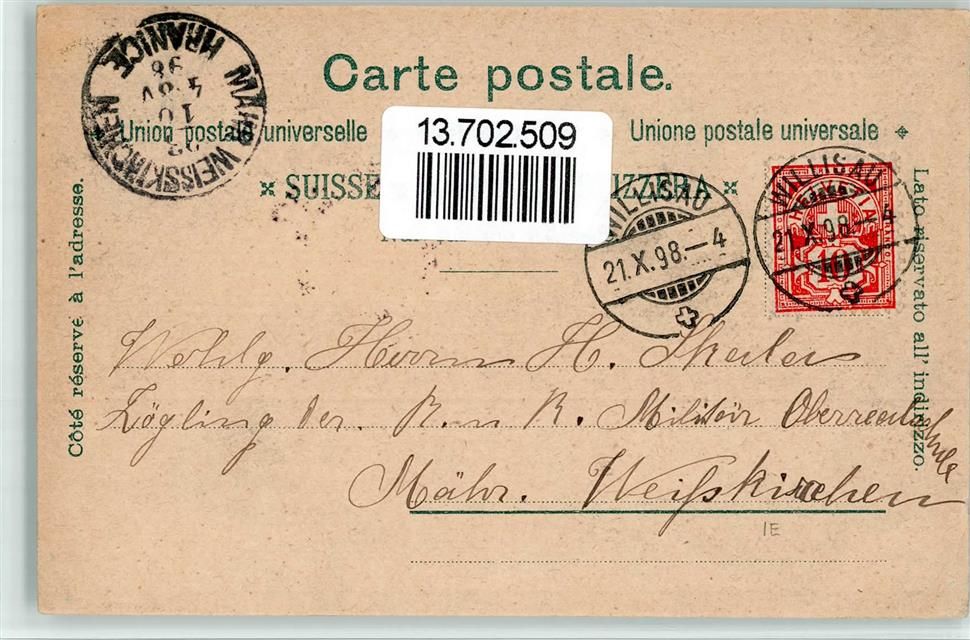 Carte postale.
Union postale universelle
Unione postale universale
13.702.509
SUISSE ZZERA
Côté réservé à l'adresse.
Lato riservato all' indirizzo.
MÄHR. WEISSKIRCHEN
HRANICE
98
WILLISAU
21.X.98.–4
WILLISAU
21.X.98.–4
10
Wohlg. Herrn H.
Zögling der K. u. K. Militär Oberrealschule
Mähr. Weißkirchen
IE